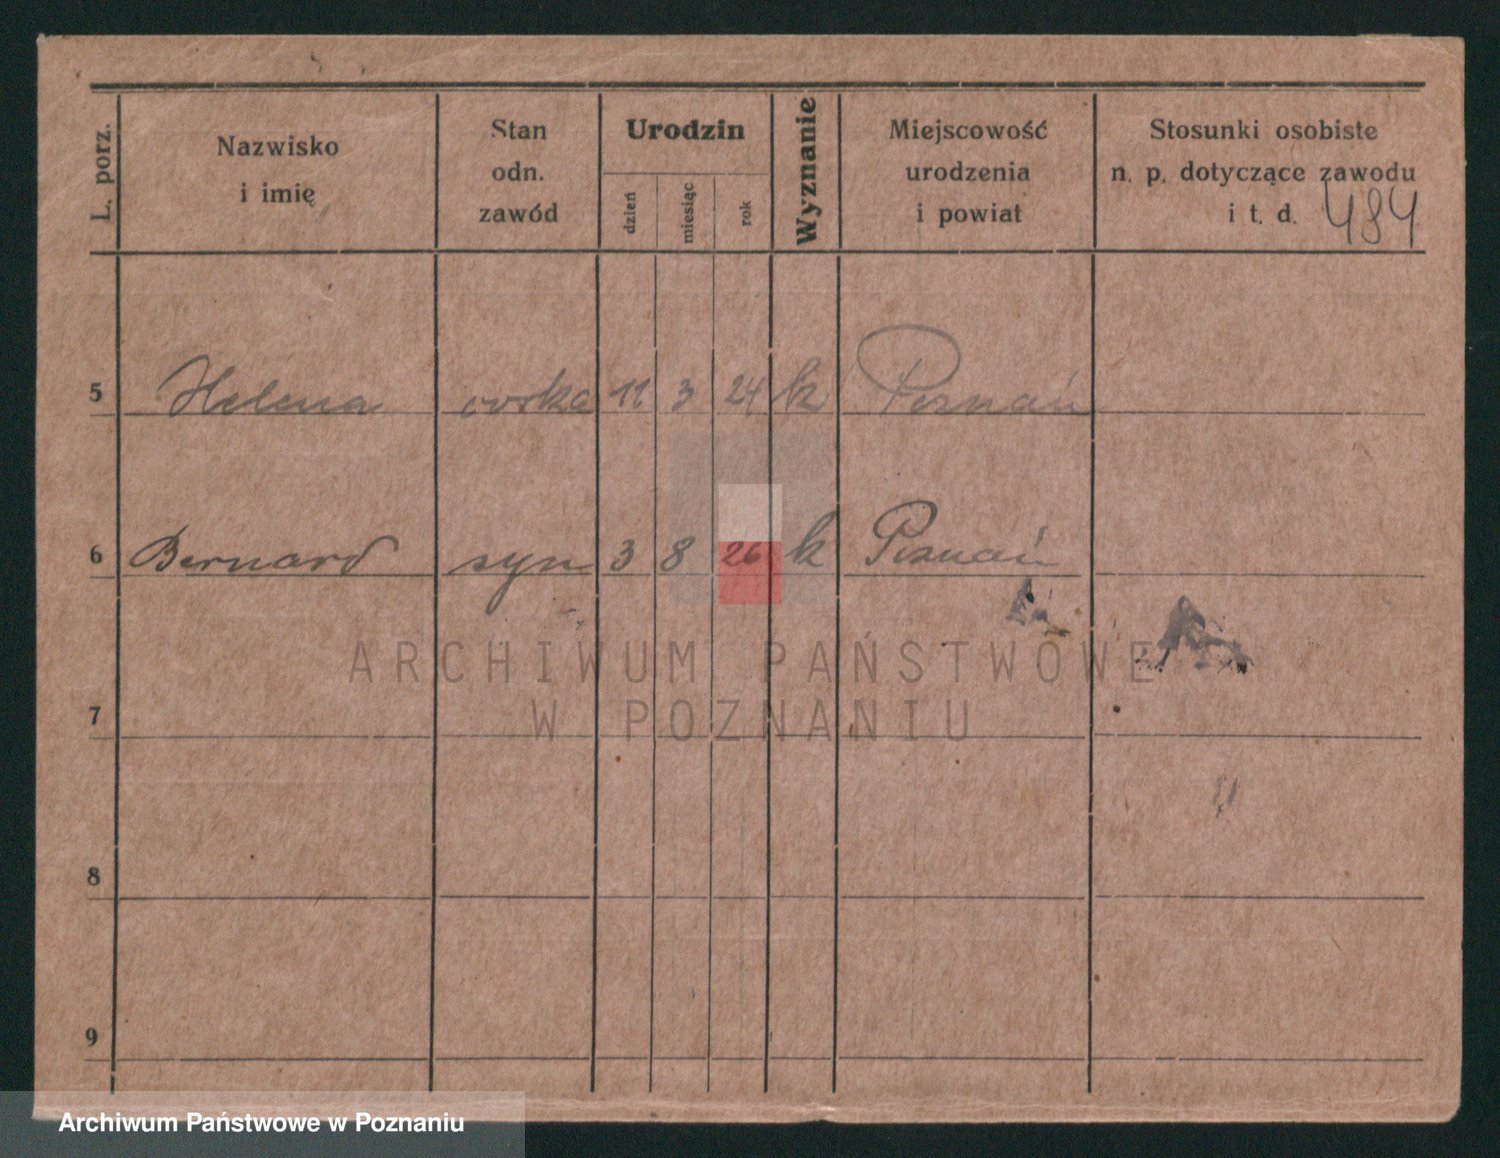 L. porz.
Nazwisko
i imię
Stan
odn.
zawód
Urodzin
dzień
miesiąc
rok
Wyznanie
Miejscowość
urodzenia
i powiat
Stosunki osobiste
n. p. dotyczące zawodu
i t. d. 484
5 Helena córka 11 3 24 k Poznań
6 Bernard syn 3 8 26 k Poznań
ARCHIWUM PAŃSTWOWE
W POZNANIU
7
8
9
Archiwum Państwowe w Poznaniu